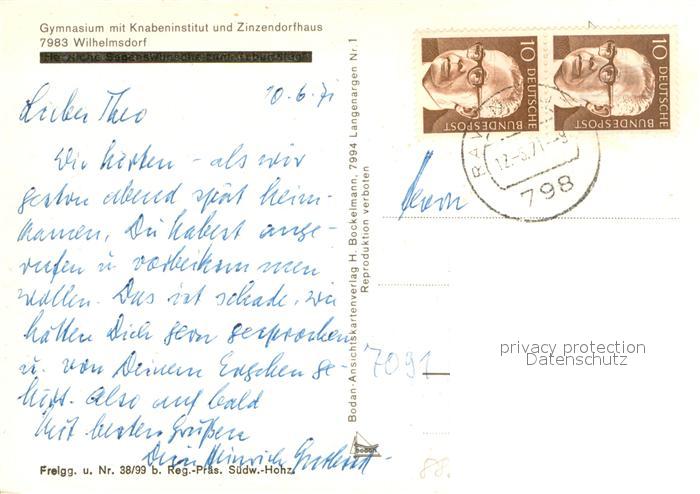 Gymnasium mit Knabeninstitut und Zinzendorfhaus
7983 Wilhelmsdorf
Herzliche Segenswünsche zum Geburtstag!
10.6.71
Lieber Theo
Wir hörten – als wir
gestern abend spät heim-
kamen, Du habest ange-
rufen u. vorbeikommen
wollen. Das ist schade, wir
hätten Dich gern gesprochen
u. von Deinem Ergehen ge-
hört. Also auf bald
Mit besten Grüßen
Dein Heinrich
Freigg. u. Nr. 38/99 b. Reg.-Präs. Südw.-Hohz.
Bodan-Ansichtskartenverlag H. Bockelmann, 7994 Langenargen Nr. 1
Reproduktion verboten
bodan
10 DEUTSCHE BUNDESPOST
10 DEUTSCHE BUNDESPOST
798
Herrn
7091
privacy protection
Datenschutz
88.